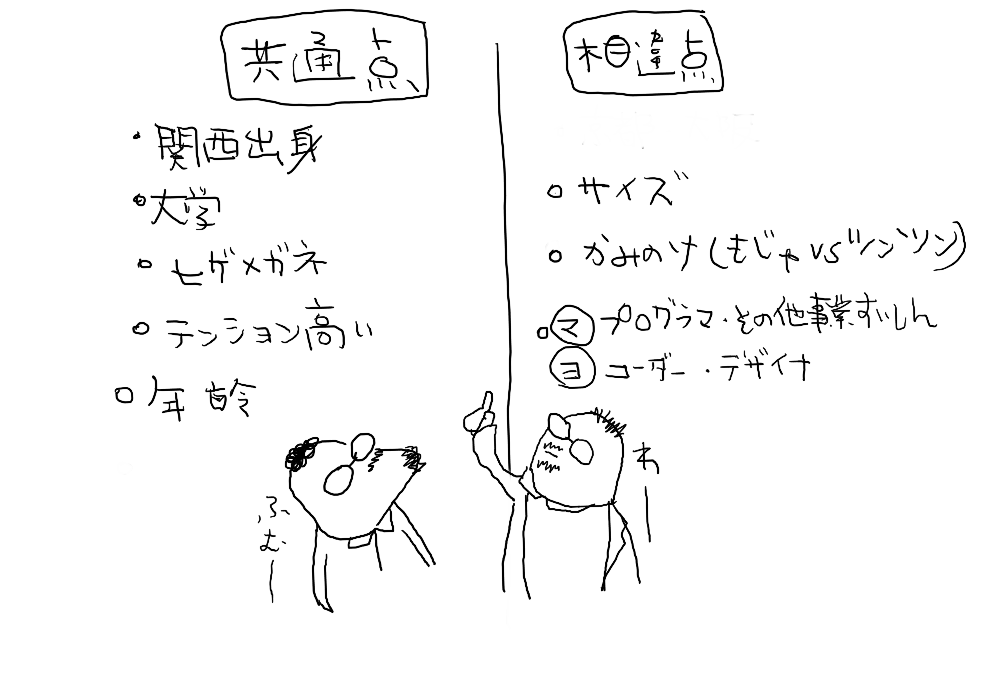 共通点
・関西出身
・大学
・ヒゲメガネ
・テンション高い
・年齢
相違点
・サイズ
・かみのけ(もじゃvsツンツン)
・マ プログラマ・その他事業すいしん
ヨ コーダー・デザイナ
ふむー
わー